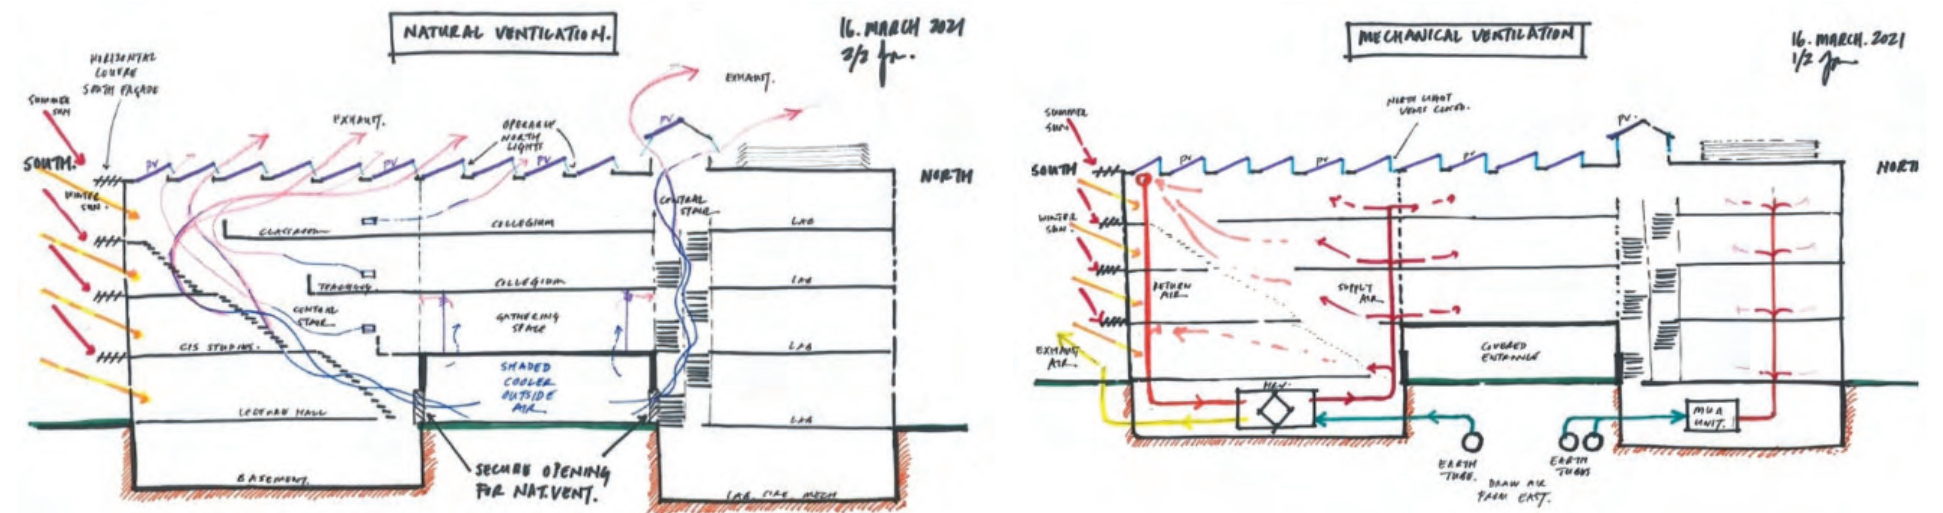 NATURAL VENTILATION.
16. MARCH 2021
2/2
HORIZONTAL
LOUVRE
SOUTH FAÇADE
SUMMER
SUN
EXHAUST.
EXHAUST.
OPERABLE
NORTH
LIGHTS
PV
PV
PV
PV
SOUTH.
NORTH
WINTER
SUN.
CENTRAL
STAIR
CLASSROOM
COLLEGIUM
LAB
TEACHING.
COLLEGIUM
LAB
CENTRAL
STAIR.
GATHERING
SPACE
CIS STUDIOS.
LAB
SHADED
COOLER
OUTSIDE
AIR.
LECTURE HALL
LAB
BASEMENT.
SECURE OPENING
FOR NAT.VENT.
LAB. MECH
MECHANICAL VENTILATION
16. MARCH. 2021
1/2
NORTH LIGHT
VENTS CLOSED.
SUMMER
SUN.
PV.
PV
PV
PV
SOUTH
NORTH
WINTER
SUN.
RETURN
AIR.
SUPPLY
AIR.
EXHAUST
AIR.
COVERED
ENTRANCE
HRV.
MUA
UNIT.
EARTH
TUBE.
EARTH
TUBES
DRAW AIR
FROM EAST.